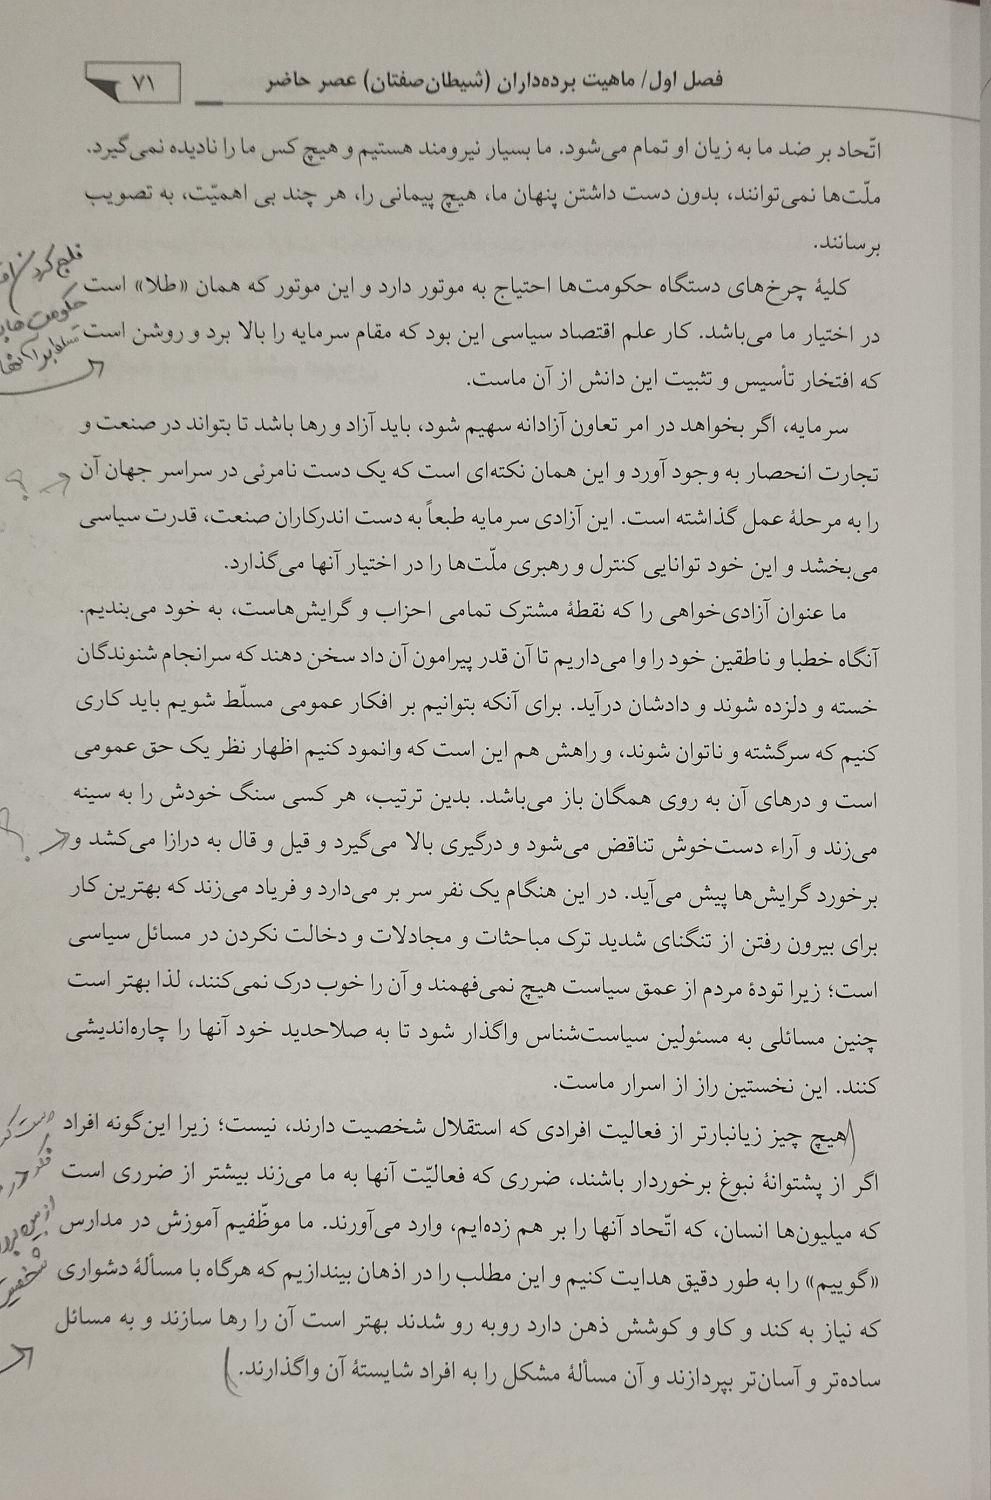 فصل اول/ ماهیت برده‌داران (شیطان‌صفتان) عصر حاضر
۷۱
اتّحاد بر ضد ما به زیان او تمام می‌شود. ما بسیار نیرومند هستیم و هیچ کس ما را نادیده نمی‌گیرد.
ملّت‌ها نمی‌توانند، بدون دست داشتن پنهان ما، هیچ پیمانی را، هر چند بی اهمیّت، به تصویب
برسانند.
کلیۀ چرخ‌های دستگاه حکومت‌ها احتیاج به موتور دارد و این موتور که همان «طلا» است
در اختیار ما می‌باشد. کار علم اقتصاد سیاسی این بود که مقام سرمایه را بالا برد و روشن است
که افتخار تأسیس و تثبیت این دانش از آن ماست.
فلج کردن
حکومت‌ها
تسلط بر آنها
سرمایه، اگر بخواهد در امر تعاون آزادانه سهیم شود، باید آزاد و رها باشد تا بتواند در صنعت و
تجارت انحصار به وجود آورد و این همان نکته‌ای است که یک دست نامرئی در سراسر جهان آن
را به مرحلۀ عمل گذاشته است. این آزادی سرمایه طبعاً به دست اندرکاران صنعت، قدرت سیاسی
می‌بخشد و این خود توانایی کنترل و رهبری ملّت‌ها را در اختیار آنها می‌گذارد.
؟
ما عنوان آزادی‌خواهی را که نقطۀ مشترک تمامی احزاب و گرایش‌هاست، به خود می‌بندیم.
آنگاه خطبا و ناطقین خود را وا می‌داریم تا آن قدر پیرامون آن داد سخن دهند که سرانجام شنوندگان
خسته و دلزده شوند و دادشان درآید. برای آنکه بتوانیم بر افکار عمومی مسلّط شویم باید کاری
کنیم که سرگشته و ناتوان شوند، و راهش هم این است که وانمود کنیم اظهار نظر یک حق عمومی
است و درهای آن به روی همگان باز می‌باشد. بدین ترتیب، هر کسی سنگ خودش را به سینه
می‌زند و آراء دست‌خوش تناقض می‌شود و درگیری بالا می‌گیرد و قیل و قال به درازا می‌کشد و
برخورد گرایش‌ها پیش می‌آید. در این هنگام یک نفر سر بر می‌دارد و فریاد می‌زند که بهترین کار
برای بیرون رفتن از تنگنای شدید ترک مباحثات و مجادلات و دخالت نکردن در مسائل سیاسی
است؛ زیرا تودۀ مردم از عمق سیاست هیچ نمی‌فهمند و آن را خوب درک نمی‌کنند، لذا بهتر است
چنین مسائلی به مسئولین سیاست‌شناس واگذار شود تا به صلاحدید خود آنها را چاره‌اندیشی
کنند. این نخستین راز از اسرار ماست.
؟
(هیچ چیز زیانبارتر از فعالیت افرادی که استقلال شخصیت دارند، نیست؛ زیرا این‌گونه افراد
اگر از پشتوانۀ نبوغ برخوردار باشند، ضرری که فعالیّت آنها به ما می‌زند بیشتر از ضرری است
که میلیون‌ها انسان، که اتّحاد آنها را بر هم زده‌ایم، وارد می‌آورند. ما موظّفیم آموزش در مدارس
«گوییم» را به طور دقیق هدایت کنیم و این مطلب را در اذهان بیندازیم که هرگاه با مسألۀ دشواری
که نیاز به کند و کاو و کوشش ذهن دارد روبه رو شدند بهتر است آن را رها سازند و به مسائل
ساده‌تر و آسان‌تر بپردازند و آن مسألۀ مشکل را به افراد شایستۀ آن واگذارند.)